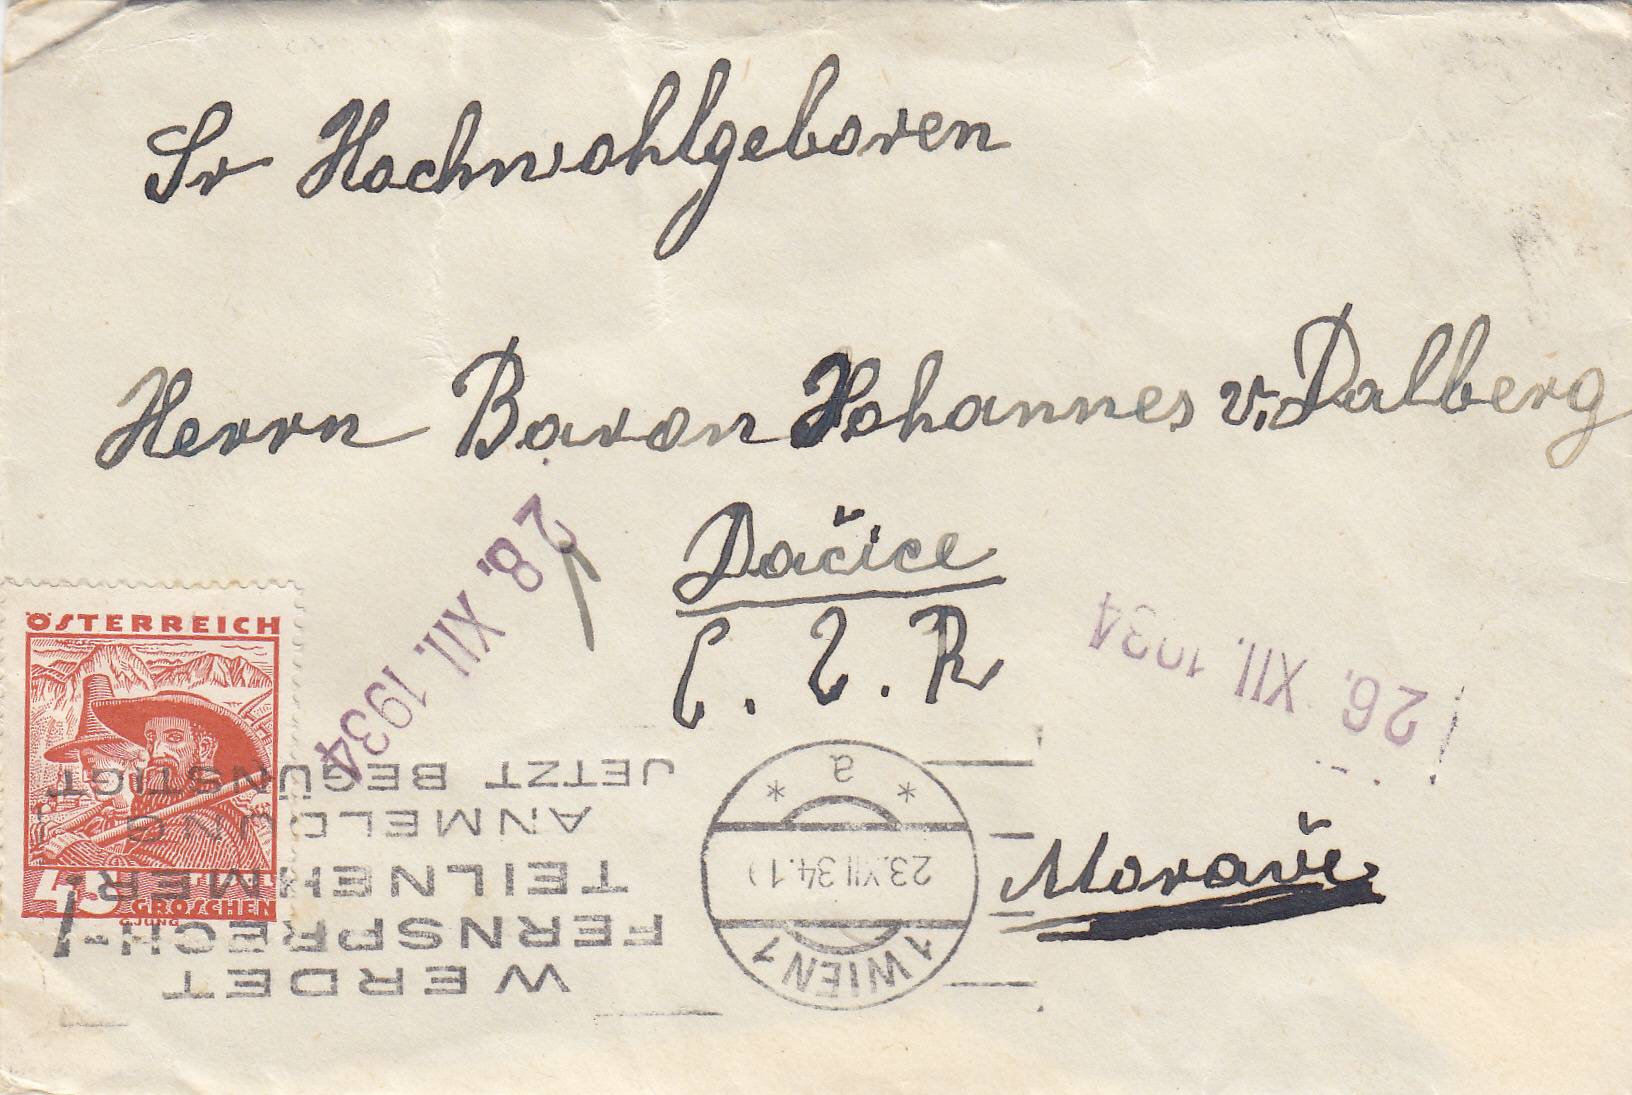 Sr Hochwohlgeboren
Herrn Baron Johannes v. Dalberg
Dačice
Č. S. R
Moravě
28. XII. 1934
26. XII. 1934
ÖSTERREICH
45
TIROL
GROSCHEN
G JUNG
WERDET
FERNSPRECH-
TEILNEHMER!
ANMELDUNG
JETZT BEGÜNSTIGT
1 WIEN 1
23.XII 34.1
* a *